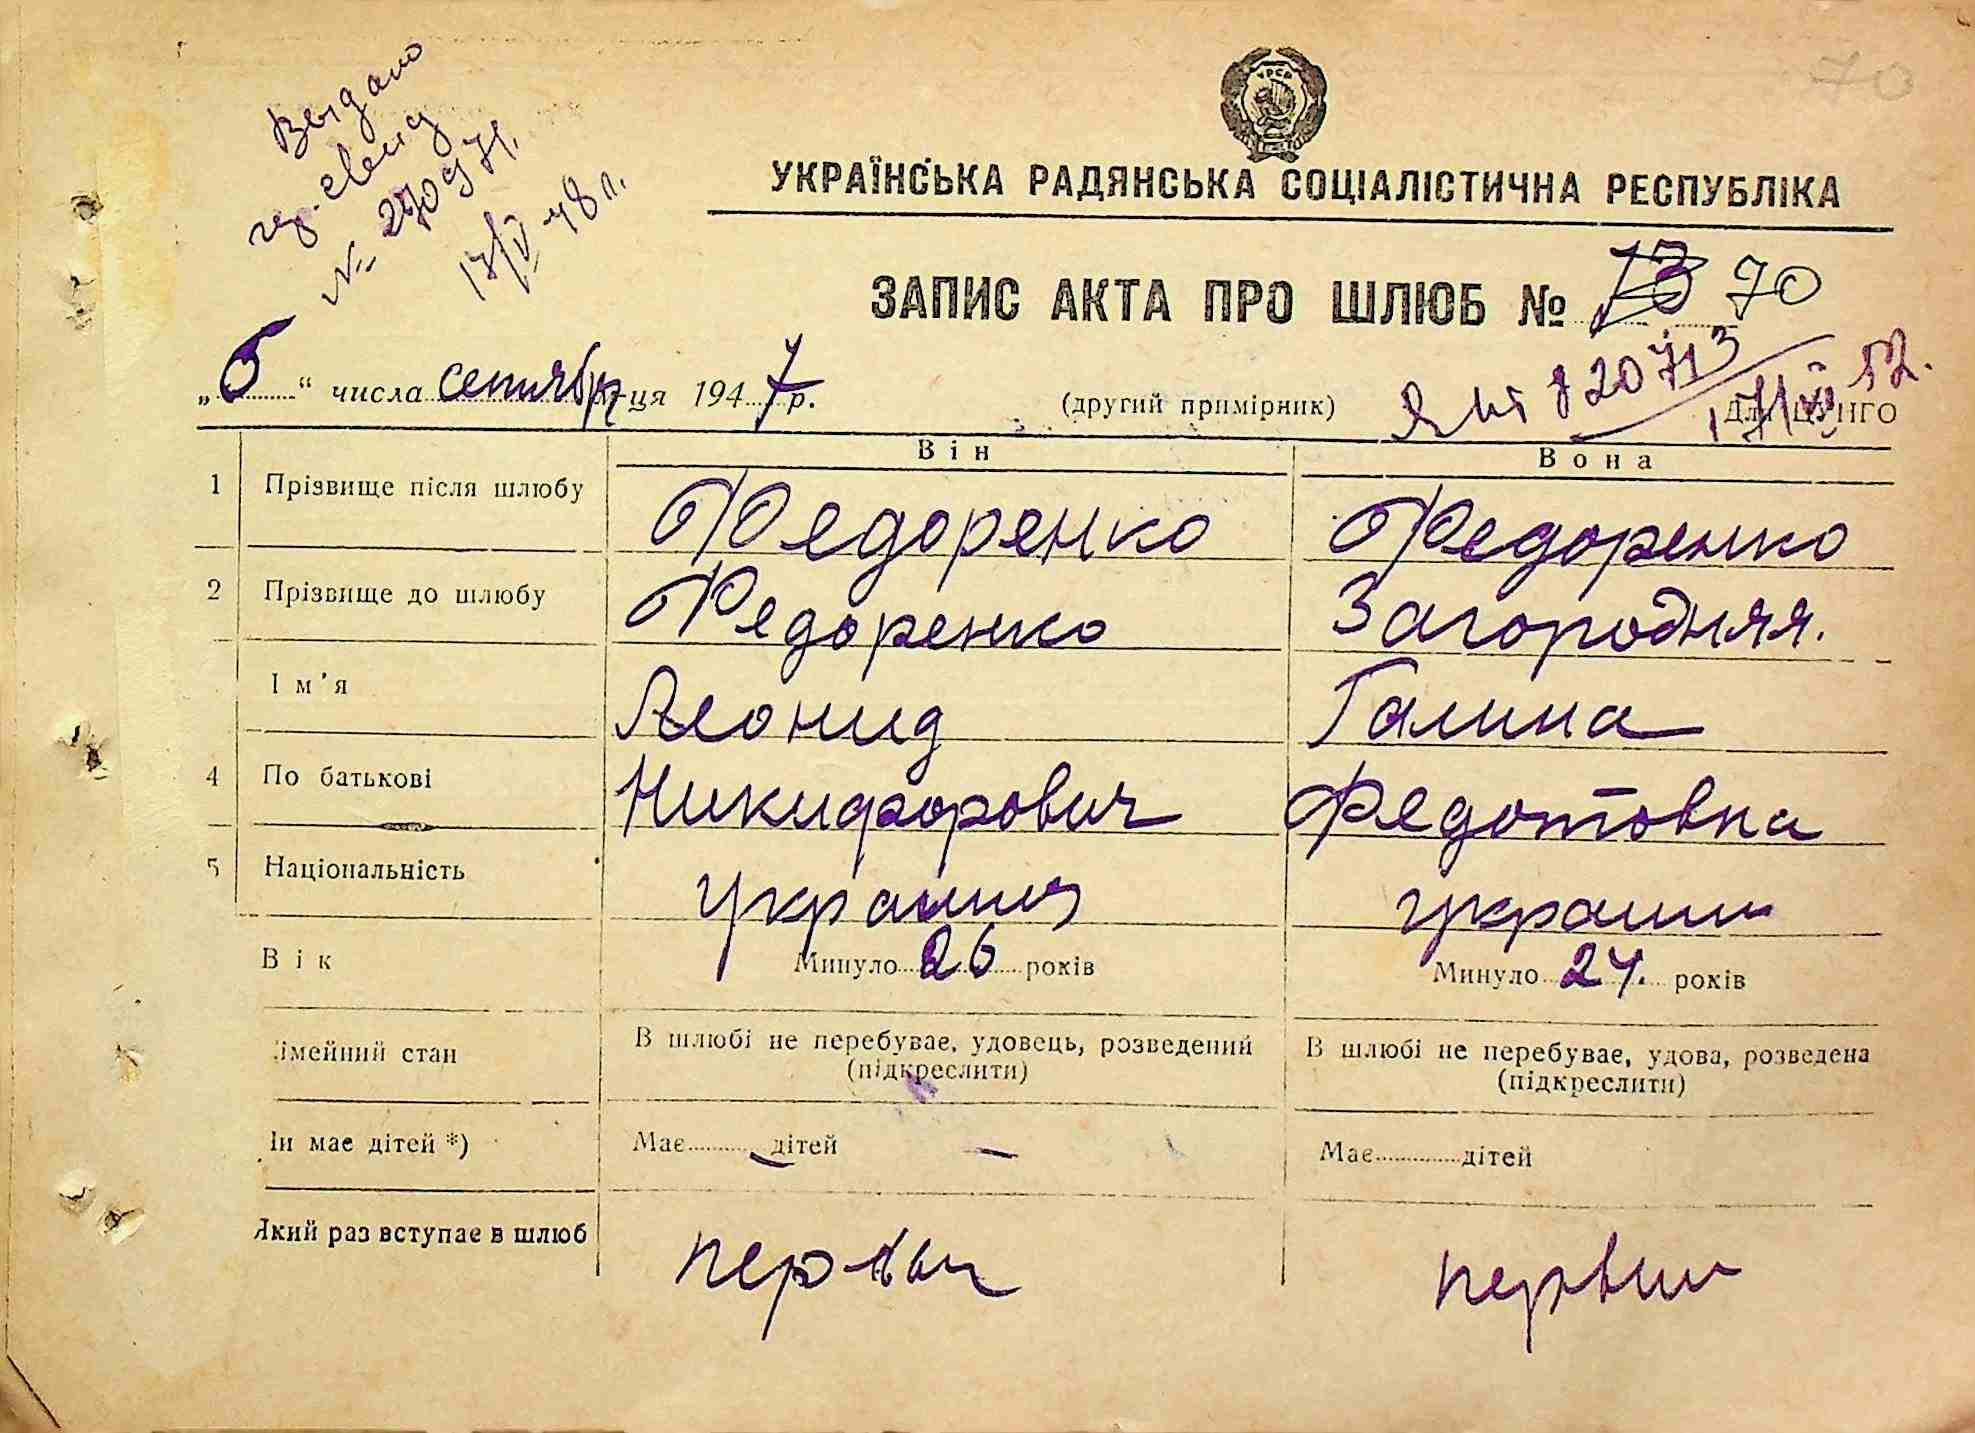 70
Выдано
№ 270971.
17/V 48 г.
УРСР
УКРАЇНСЬКА РАДЯНСЬКА СОЦІАЛІСТИЧНА РЕСПУБЛІКА
ЗАПИС АКТА ПРО ШЛЮБ № 13 70
„6“ числа сентябр м-ця 1947 р. (другий примірник) Для ЦУНГО
820713
52.
Він Вона
1 Прізвище після шлюбу Федоренко Федоренко
2 Прізвище до шлюбу Федоренко Загородняя.
Ім'я Леонид Галина
4 По батькові Никифорович Федотовна
5 Національність украинц украин
Вік Минуло 26 років Минуло 24. років
імейний стан В шлюбі не перебуває, удовець, розведений (підкреслити) В шлюбі не перебуває, удова, розведена (підкреслити)
Чи має дітей *) Має — дітей — Має дітей
Який раз вступає в шлюб первый первый